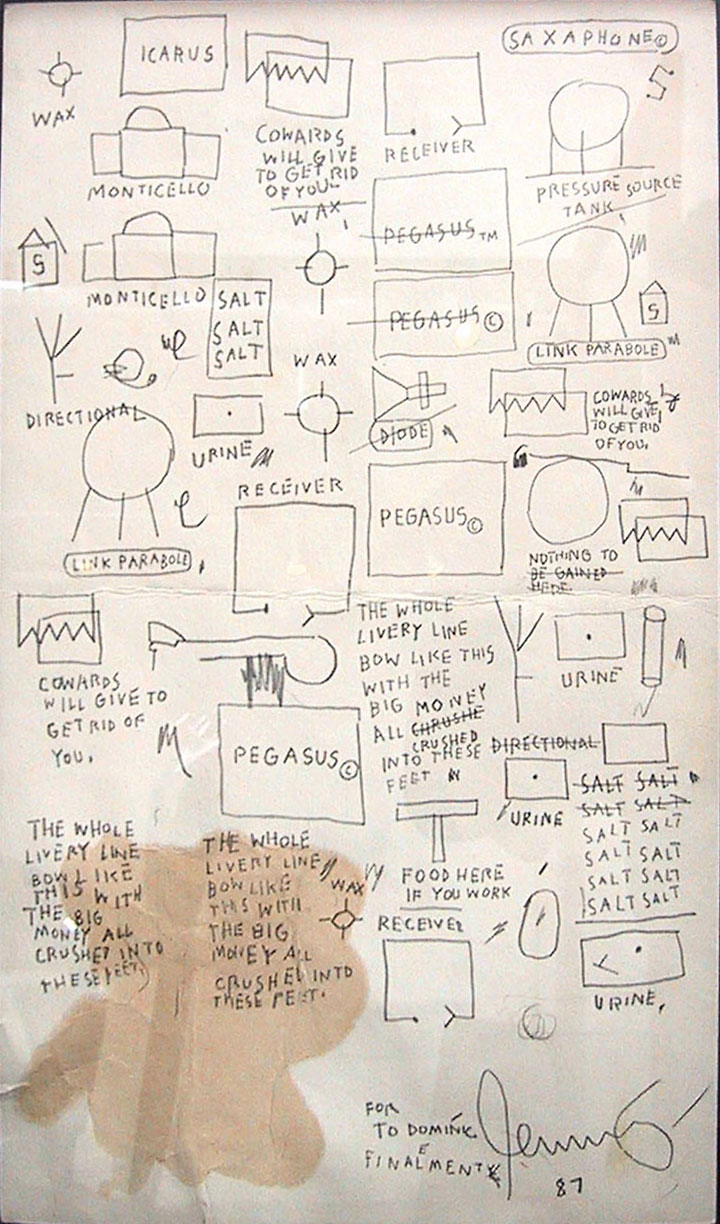 SAXAPHONE©
ICARUS
S
WAX
COWARDS
WILL GIVE
TO GET RID
OF YOU
RECEIVER
MONTICELLO
PRESSURE SOURCE
TANK
WAX
PEGASUS™
S
MONTICELLO
SALT
SALT
SALT
PEGASUS©
S
LINK PARABOLE
WAX
DIRECTIONAL
URINE
DIODE
COWARDS
WILL GIVE
TO GET RID
OF YOU.
RECEIVER
PEGASUS©
LINK PARABOLE
NOTHING TO
BE GAINED
HEDE.
COWARDS
WILL GIVE TO
GET RID OF
YOU.
THE WHOLE
LIVERY LINE
BOW LIKE THIS
WITH THE
BIG MONEY
ALL CHRUSHE
CRUSHED
INTO THESE
FEET
URINE
PEGASUS©
DIRECTIONAL
URINE
SALT SALT
SALT SALT
SALT SALT
SALT SALT
SALT SALT
SALT SALT
THE WHOLE
LIVERY LINE
BOW LIKE
THIS WITH
THE BIG
MONEY ALL
CRUSHED INTO
THESE FEET
THE WHOLE
LIVERY LINE
BOW LIKE
THIS WITH
THE BIG
MONEY ALL
CRUSHED INTO
THESE FEET.
WAX
FOOD HERE
IF YOU WORK
RECEIVER
URINE,
FOR
TO DOMINK
FINALEMENT
87